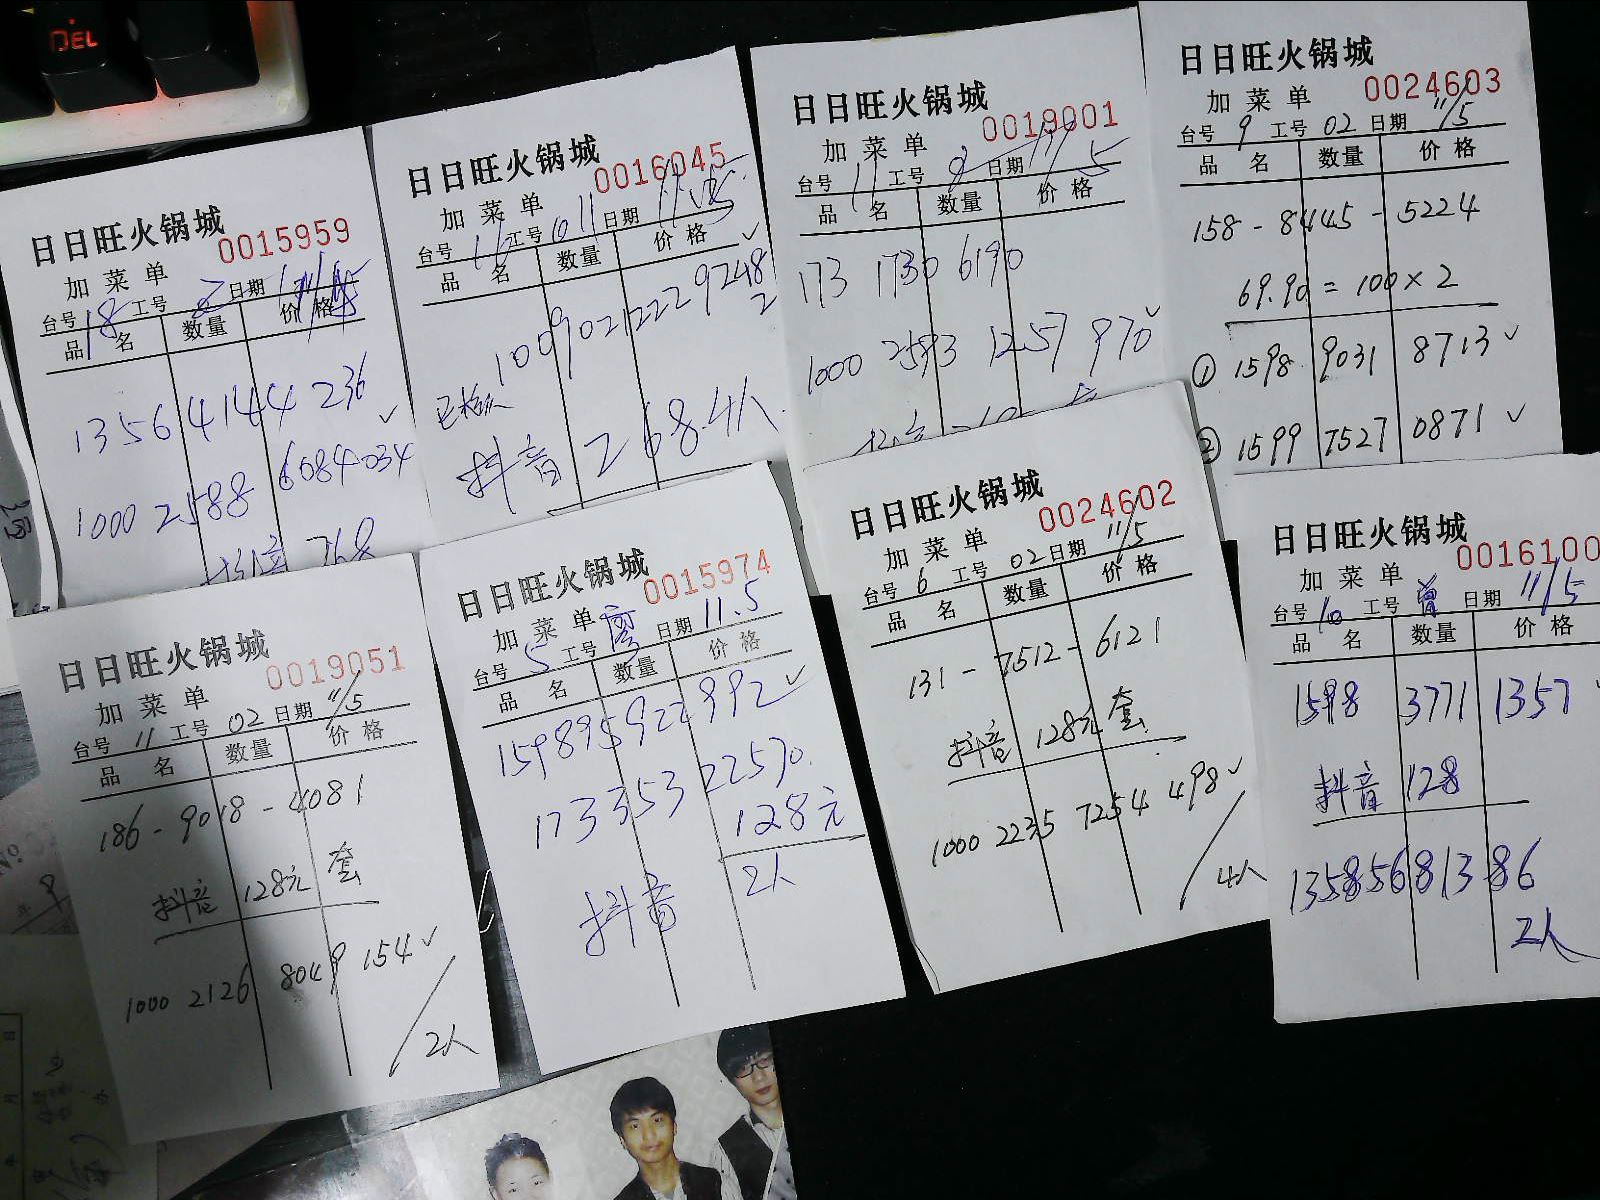 DEL
日日旺火锅城
0015959
加菜单
台号 18 工号 日期
品名 数量 价格
13564144236
1000 2588 6084034
抖音 268
日日旺火锅城
0016045
加菜单
台号 工号 011 日期
品名 数量 价格
1009021222292482
抖音 268.4人
日日旺火锅城
0019001
加菜单
台号 11 工号 日期 11/5
品名 数量 价格
173 1730 6190
1000 2593 1257 970
日日旺火锅城
0024603
加菜单
台号 9 工号 02 日期 11/5
品名 数量 价格
158-8445-5224
69.90=100×2
① 1598 9031 8713 ✓
② 1599 7527 0871 ✓
日日旺火锅城
0019051
加菜单
台号 11 工号 02 日期 11/5
品名 数量 价格
186-9018-4081
抖音 128元 套
1000 2126 8049 154 ✓
2人
日日旺火锅城
0015974
加菜单
台号 5 工号 廖 日期 11.5
品名 数量 价格
159895922992 ✓
17335322570
128元
抖音 2人
日日旺火锅城
0024602
加菜单
台号 6 工号 02 日期 11/5
品名 数量 价格
131-7512-6121
抖音 128元 套
1000 2235 7254 498 ✓
4人
日日旺火锅城
0016100
加菜单
台号 10 工号 曾 日期 11/5
品名 数量 价格
1598 3771 1357
抖音 128
13585681386
2人